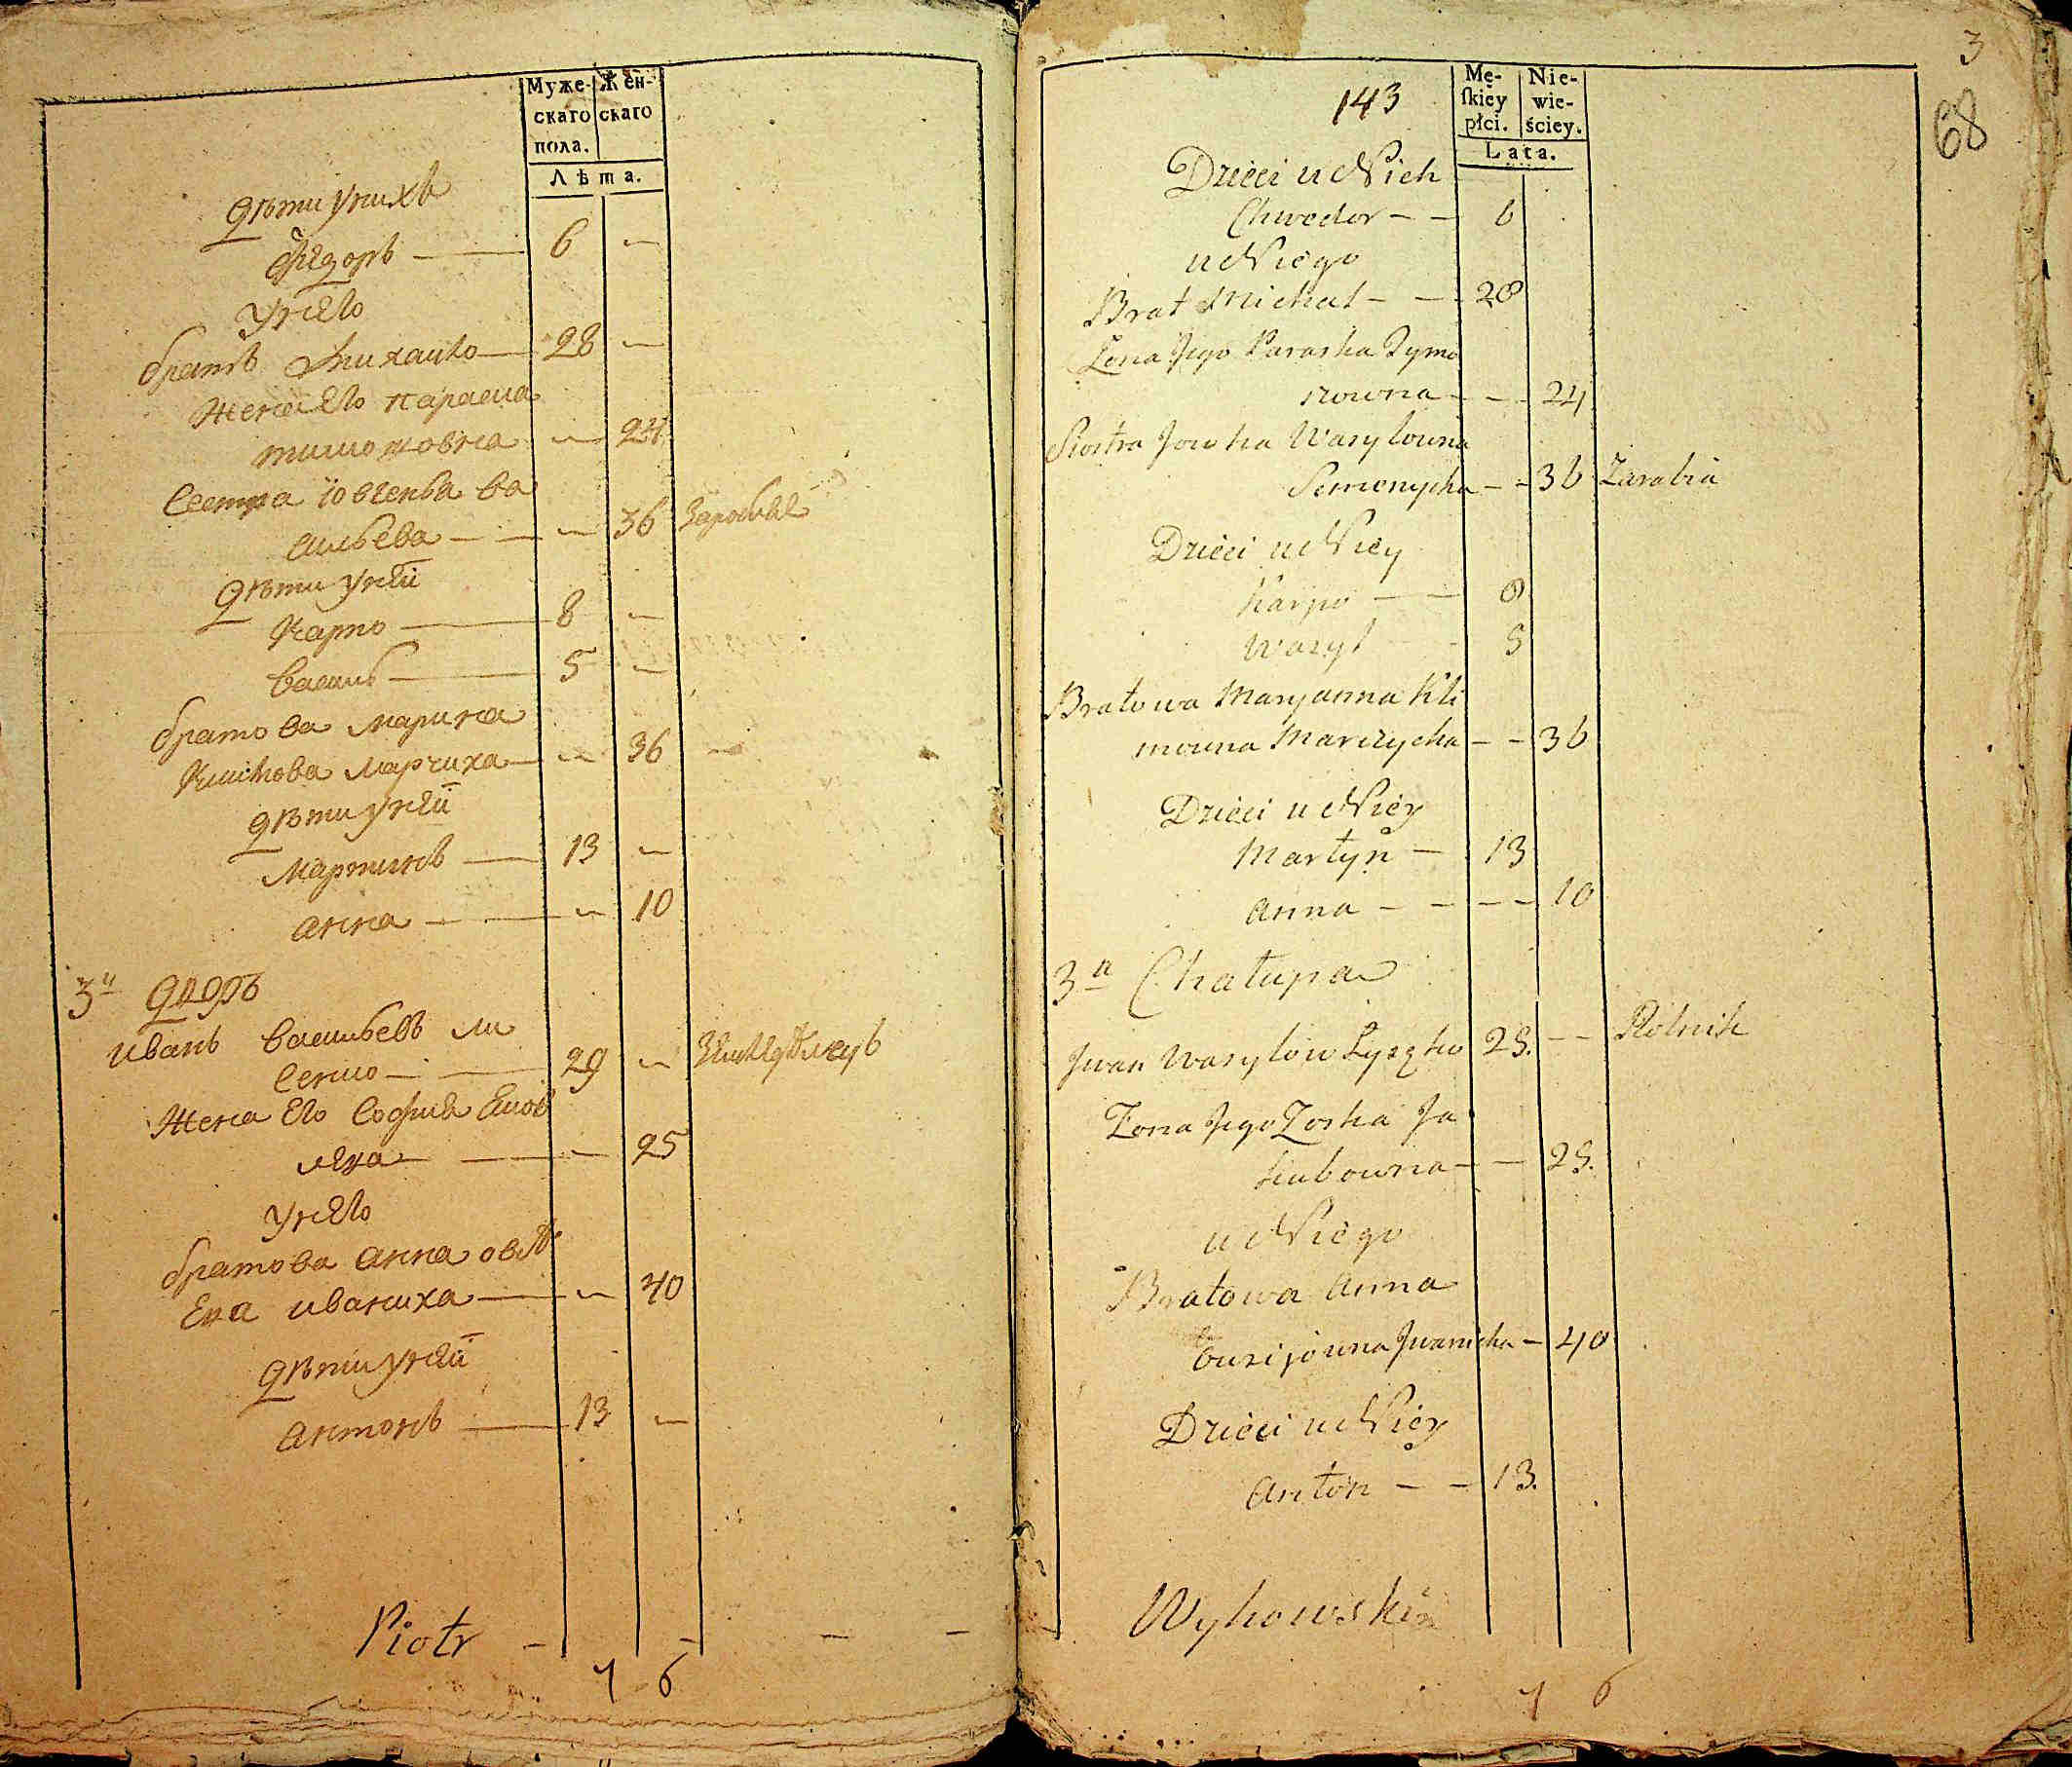 Муже-
скаго
пола.
Жен-
скаго
Лѣта.
дѣти у нихъ
Федоръ — 6 —
У него
братъ Михайло — 28 —
Жена его параска
тимошовна — 24
Сестра
сильева — — — 36
дѣти у ней
Карпо — 8 —
василь — 5 —
братова марина
Климова марчиха — — 36 —
дѣти у ней
мартинъ — 13 —
анна — — — 10
3й дворъ
иванъ васильевъ ли
сенко — — 29 —
Жена его София
— — — 25
У него
братова анна
иваниха — — 40
дѣти у ней
антонъ — 13 —
Piotr — — — —
7 6
3
68
143
Mę-
ſkiey
płci.
Nie-
wie-
ściey.
Lata.
Dzieci u Nich
Chwedor — — 6
u Niego
Brat Michał — — 28
Żona Jego Paraska Tymo
szowna — — 24
Siostra Jowha Wasylowna
Semenycha — — 36 Zarabia
Dzieci u Niey
Karpo — — 8
Wasyl — — 5
Bratowa Maryanna Kli
mowna Marczycha — — 36
Dzieci u Niey
Martyn — 13
Anna — — — — 10
3a Chałupa
Jwan Wasylow Łysęko 29. — — Rolnik
Żona Jego Zoska Ja
kubowna — — 25.
u Niego
Bratowa Anna
Jwanicha — 40
Dzieci u Niey
Anton — — 13.
Wyhowski
7 6